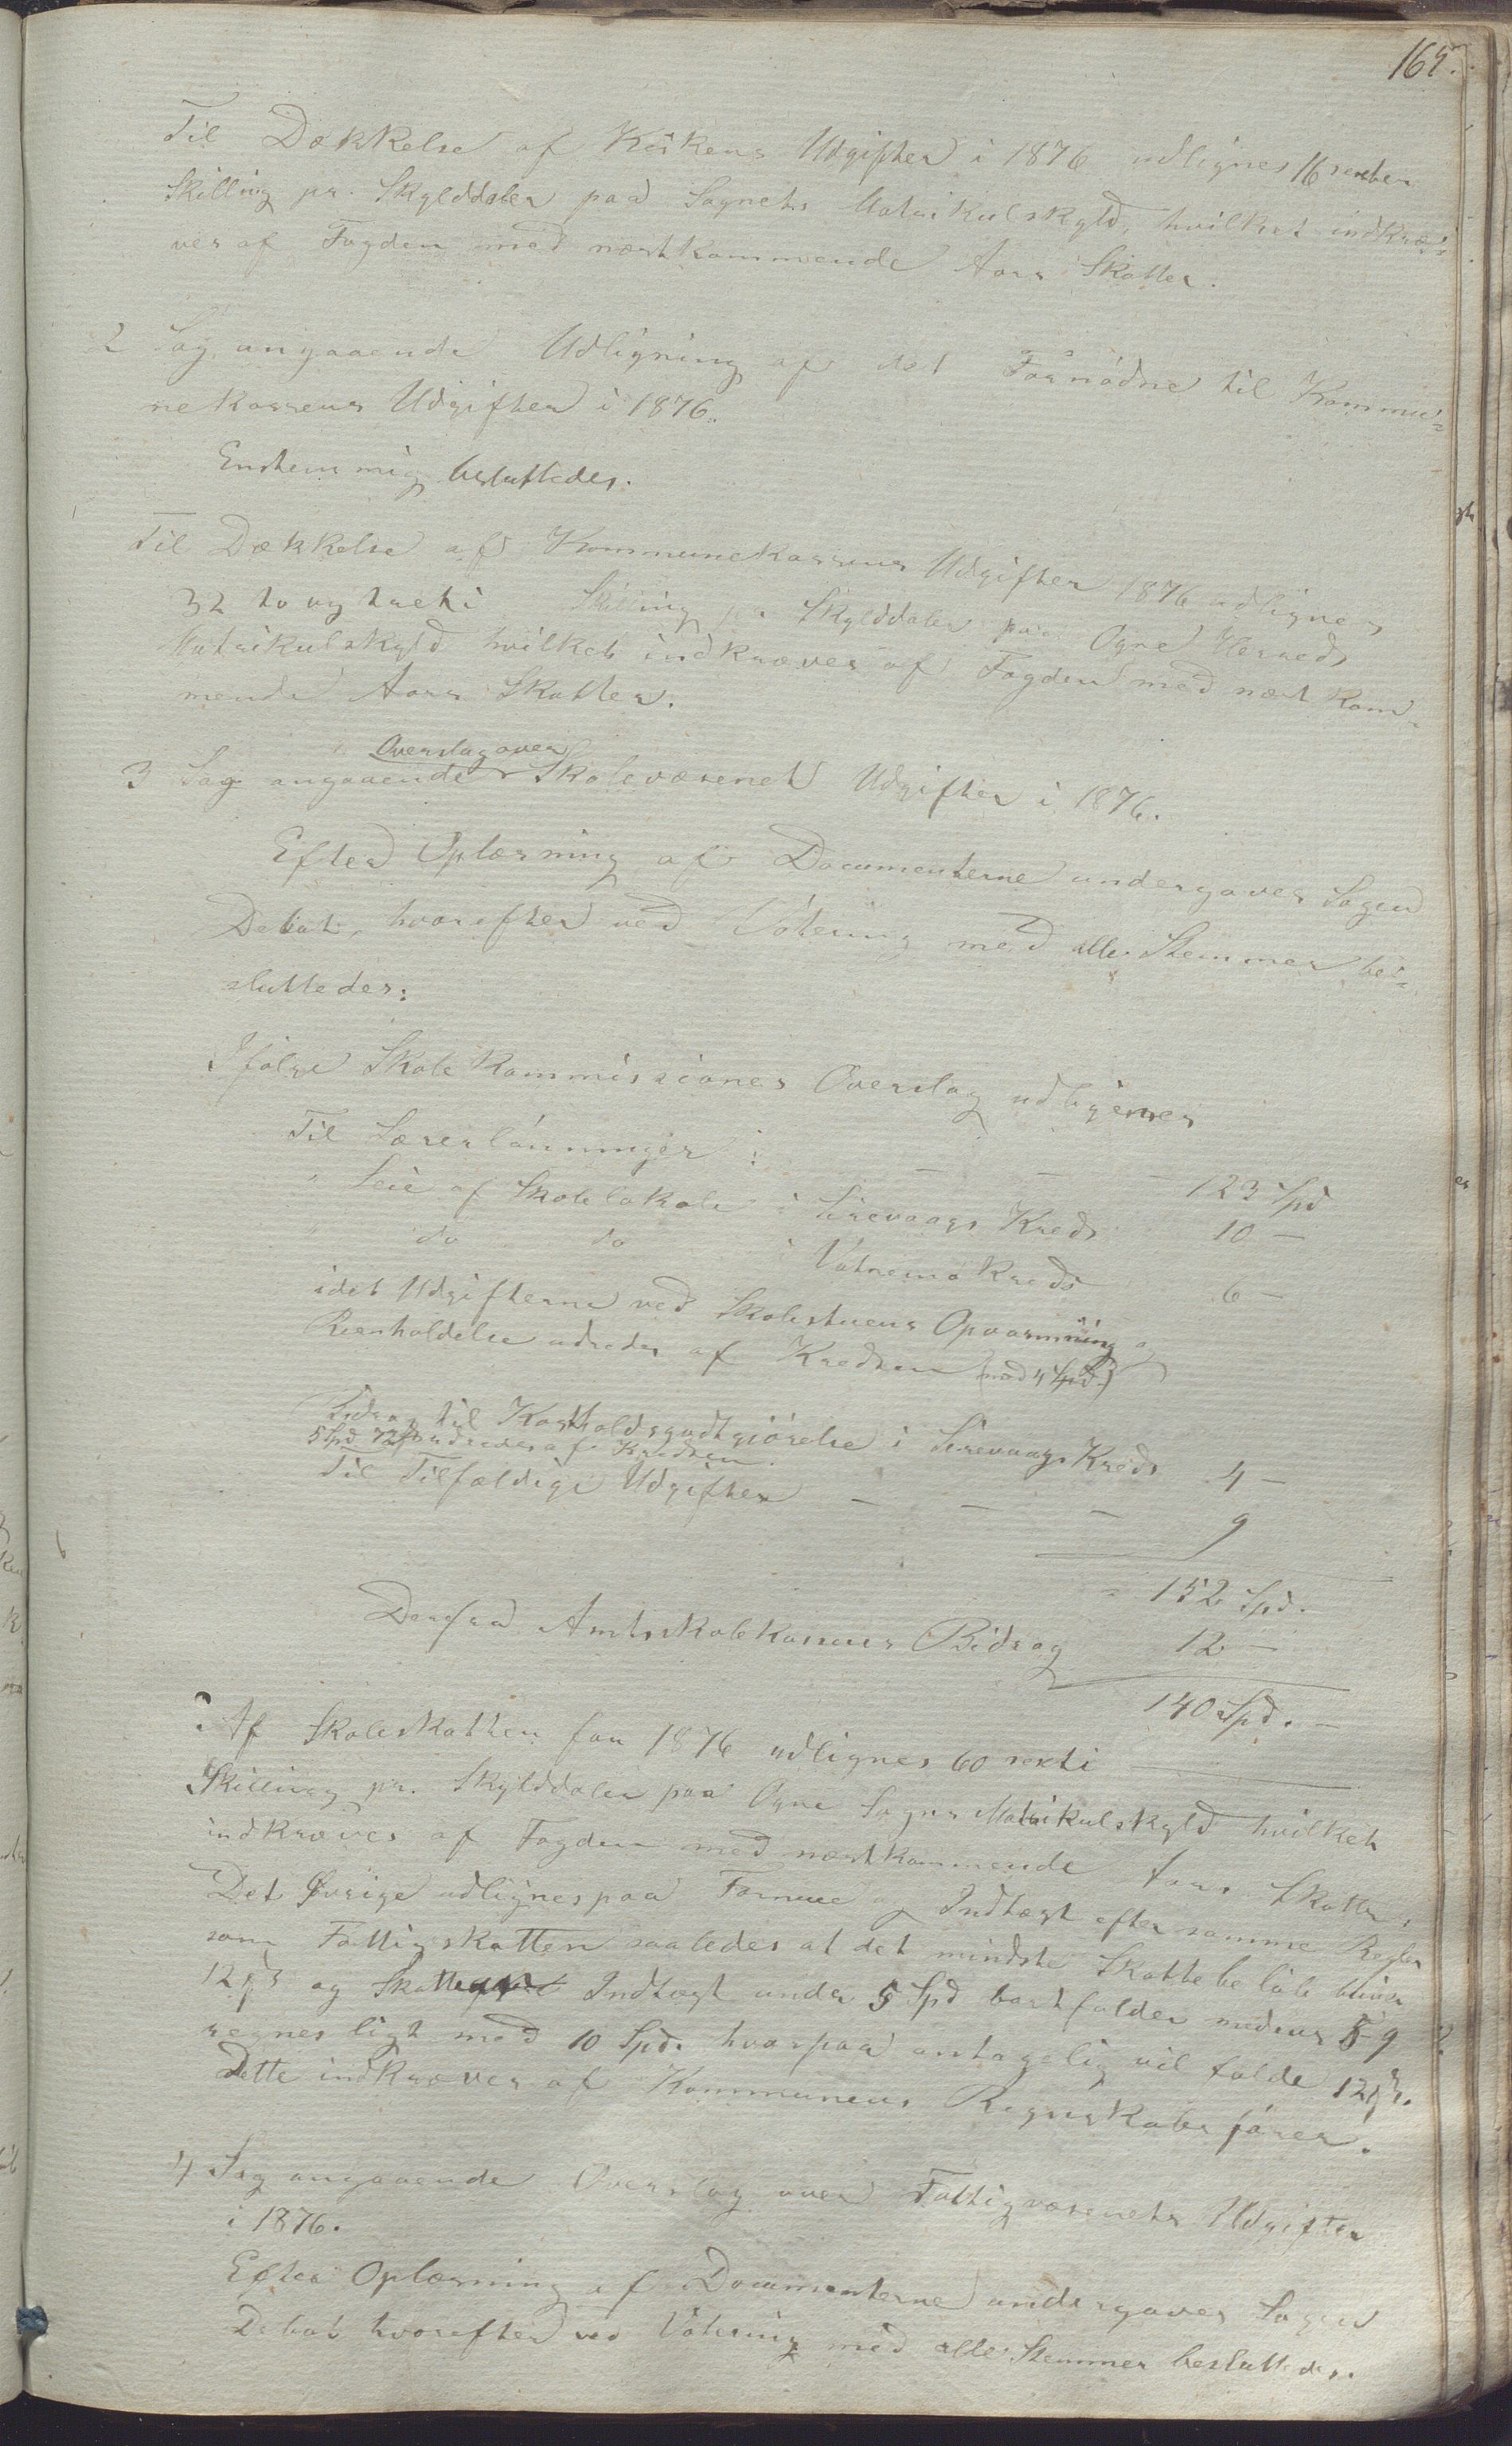 165.
Til Dækkelse af Kirkens Udgifter i 1876 udlignes 16 sexten
Skilling pr. Skylddaler paa Sognets Matrikulskyld, hvilket indkræ-
ves af Fogden med næstkommende Aars Skatter.
2 Sag angaaende Udligning af det Fornødne til Kommu-
nekassens Udgifter i 1876.
Enstemmig besluttedes.
Til Dækkelse af Kommunekassens Udgifter 1876 udlignes
32 to og treti Skilling pr Skylddaler paa Ogne Herreds
Matrikulskyld hvilket indkræves af Fogden med næst kom-
mende Aars Skatter.
Overslag over
3 Sag angaaende Skolevæsenets Udgifter i 1876.
Efter Oplæsning af Documenterne undergaves Sagen
Debat, hvorefter ved Votering med alle Stemmer be-
sluttedes:
Ifølge Skolekommissiones Overslag udlignes
Til Lærerlønninger: — — — 123 Spd
" Leie af Skolelokale i Sirevaags Kreds 10 —
" do do i Vatnemo Kreds 6 —
idet Udgifterne ved Skolestuens Opvarmning og
Reenholdelse udredes af Kredsen (med 4 Spd.)
Bidrag til Kostholdsgodtgjörelse i Sirevaags Kreds 4 —
5 Spd 72 ß udredes af Kredsen.
Til Tilfældige Udgifter — — — 9
152 Spd.
Derfra Amtsskolekassens Bidrag 12 —
140 Spd. —
Af Skoleskatten for 1876 udlignes 60 sexti
Skilling pr. Skylddaler paa Ogne Sogns Matrikulskyld hvilket
indkræves af Fogden med næstkommende Aars Skatter.
Det Øvrige udlignes paa Formue og Indtægt efter samme Regler
som Fattigskatten saaledes at det mindste Skattebeløb bliver
12 ß og Indtægt under 5 Spd bortfalder medens 5-9
regnes ligt med 10 Spd. hvorpaa antagelig vil falde 12 ß.
Dette indkræves af Kommunens Regnskabsfører.
4 Sag angaaende Overslag over Fattigvæsenets Udgifter
i 1876.
Efter Oplæsning af Documenterne undergaves Sagen
Debat hvorefter ved Votering med alle Stemmer besluttedes.